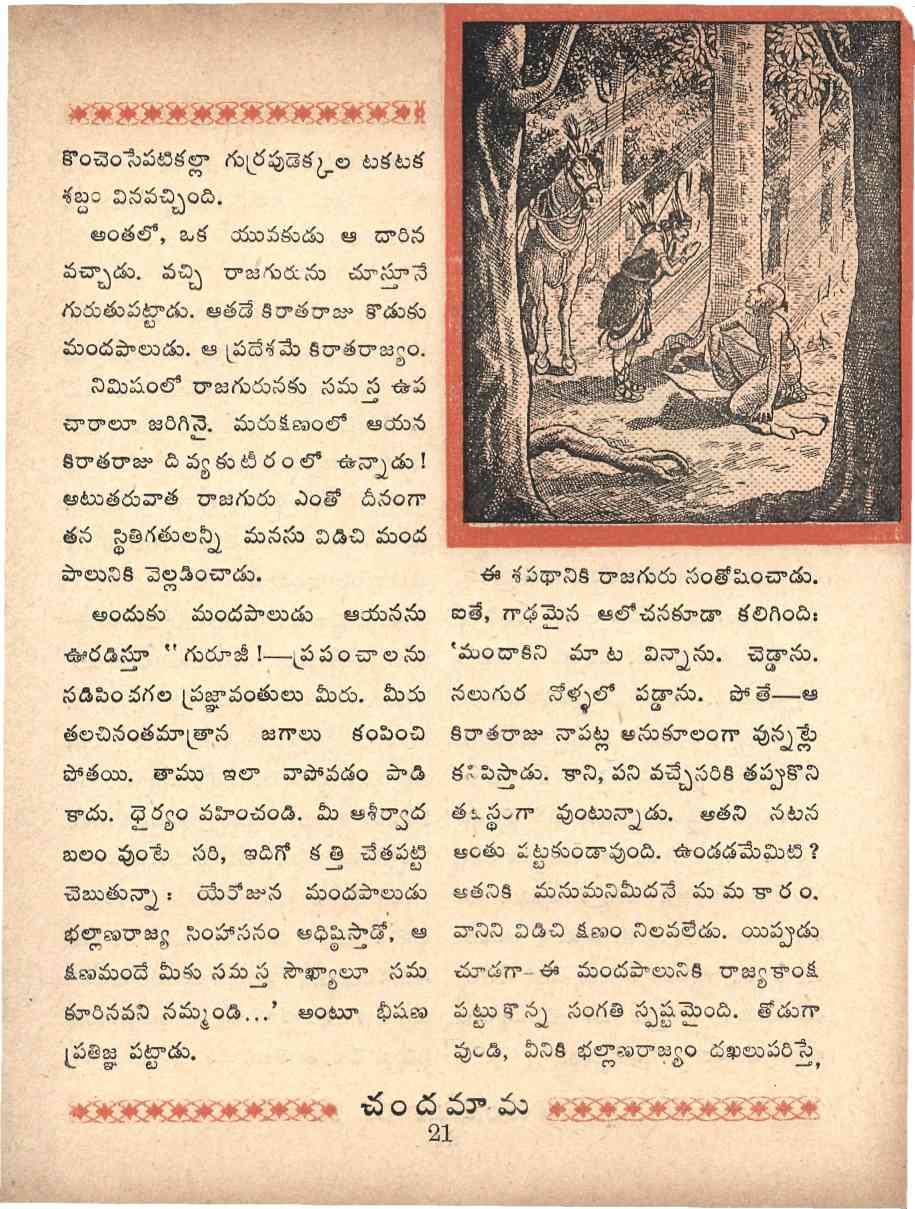 కొంచెంసేపటికల్లా గుర్రపుడెక్కల టకటక
శబ్దం వినవచ్చింది.
అంతలో, ఒక యువకుడు ఆ దారిన
వచ్చాడు. వచ్చి రాజగురును చూస్తూనే
గురుతుపట్టాడు. ఆతడే కిరాతరాజు కొడుకు
మందపాలుడు. ఆ ప్రదేశమే కిరాతరాజ్యం.
నిమిషంలో రాజగురునకు సమస్త ఉప
చారాలూ జరిగినై. మరుక్షణంలో ఆయన
కిరాతరాజు దివ్యకుటీరంలో ఉన్నాడు!
ఆటుతరువాత రాజగురు ఎంతో దీనంగా
తన స్థితిగతులన్నీ మనసు విడిచి మంద
పాలునికి వెల్లడించాడు.
అందుకు మందపాలుడు ఆయనను
ఊరడిస్తూ "గురూజీ!—ప్రపంచాలను
సడిపించగల ప్రజ్ఞావంతులు మీరు. మీరు
తలచినంతమాత్రాన జగాలు కంపించి
పోతయి. తాము ఇలా వాపోవడం పాడి
కాదు. ధైర్యం వహించండి. మీ ఆశీర్వాద
బలం వుంటే సరి, ఇదిగో కత్తి చేతపట్టి
చెబుతున్నా: యేరోజున మందపాలుడు
భల్లాణరాజ్య సింహాసనం అధిష్ఠిస్తాడో, ఆ
క్షణమందే మీకు సమస్త సౌఖ్యాలూ సమ
కూరినవని నమ్మండి...' అంటూ భీషణ
ప్రతిజ్ఞ పట్టాడు.
ఈ శపథానికి రాజగురు సంతోషించాడు.
ఐతే, గాఢమైన ఆలోచనకూడా కలిగింది:
'మందాకిని మాట విన్నాను. చెడ్డాను.
నలుగుర నోళ్ళలో పడ్డాను. పోతే—ఆ
కిరాతరాజు నాపట్ల అనుకూలంగా వున్నట్లే
కనిపిస్తాడు. కాని, పని వచ్చేసరికి తప్పుకొని
తటస్థంగా వుంటున్నాడు. ఆతని నటన
అంతు పట్టకుండావుంది. ఉండడమేమిటి?
ఆతనికి మనుమనిమీదనే మమకారం.
వానిని విడిచి క్షణం నిలవలేడు. యిప్పుడు
చూడగా-ఈ మందపాలునికి రాజ్యకాంక్ష
పట్టుకొన్న సంగతి స్పష్టమైంది. తోడుగా
వుండి, వీనికి భల్లాణరాజ్యం దఖలుపరిస్తే,
చందమామ
21